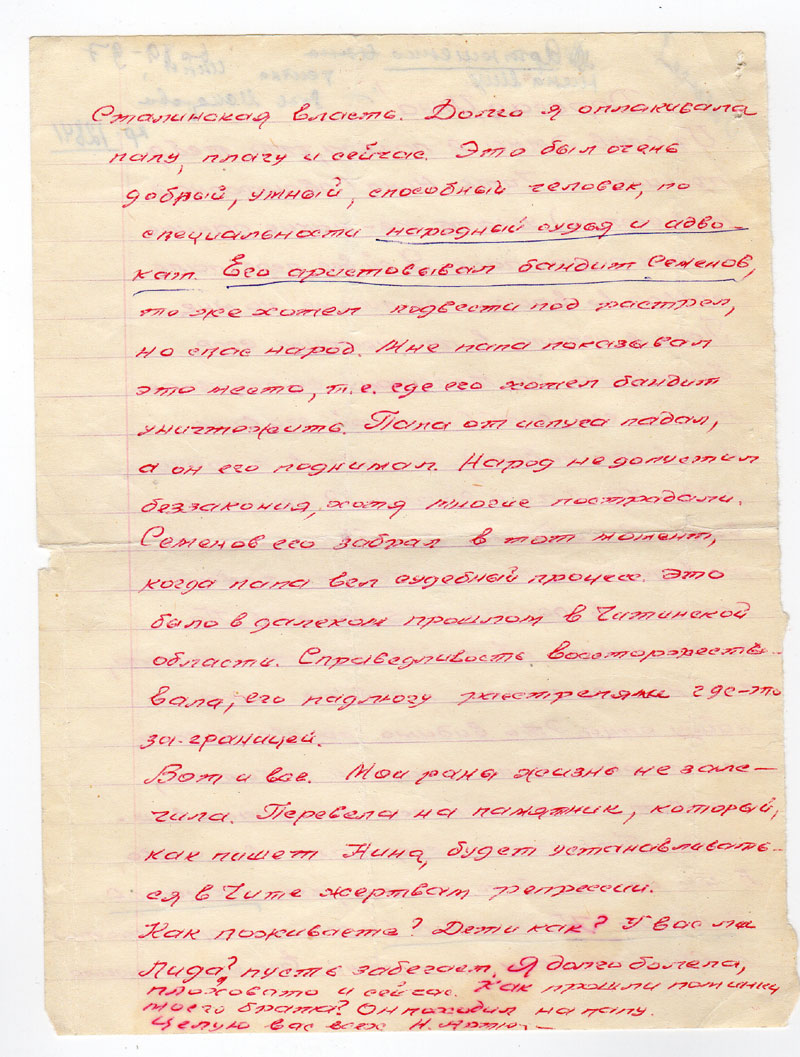 Сталинская власть. Долго я оплакивала
папу, плачу и сейчас. Это был очень
добрый, умный, способный человек, по
специальности народный судья и адво-
кат. Его аристовывал бандит Семенов,
то же хотел подвести под растрел,
но спас народ. Мне папа показывал
это место, т.е. где его хотел бандит
уничтожить. Папа от испуга падал,
а он его поднимал. Народ не допустил
беззакония, хотя многие пострадали.
Семенов его забрал в тот момент,
когда папа вел судебный процесс. Это
было в далеком прошлом в Читинской
области. Справедливость восторжество-
вала, его падлюгу расстреляли где-то
за-границей.
Вот и все. Мои раны жизнь не зале-
чила. Перевела на памятник, который,
как пишет Нина, будет устанавливать-
ся в Чите жертвам репрессии.
Как поживаете? Дети как? У вас ли
Лида? пусть забегает. Я долго болела,
плоховато и сейчас. Как прошли поминки
моего братка? Он походил на папу.
Целую вас всех Н.